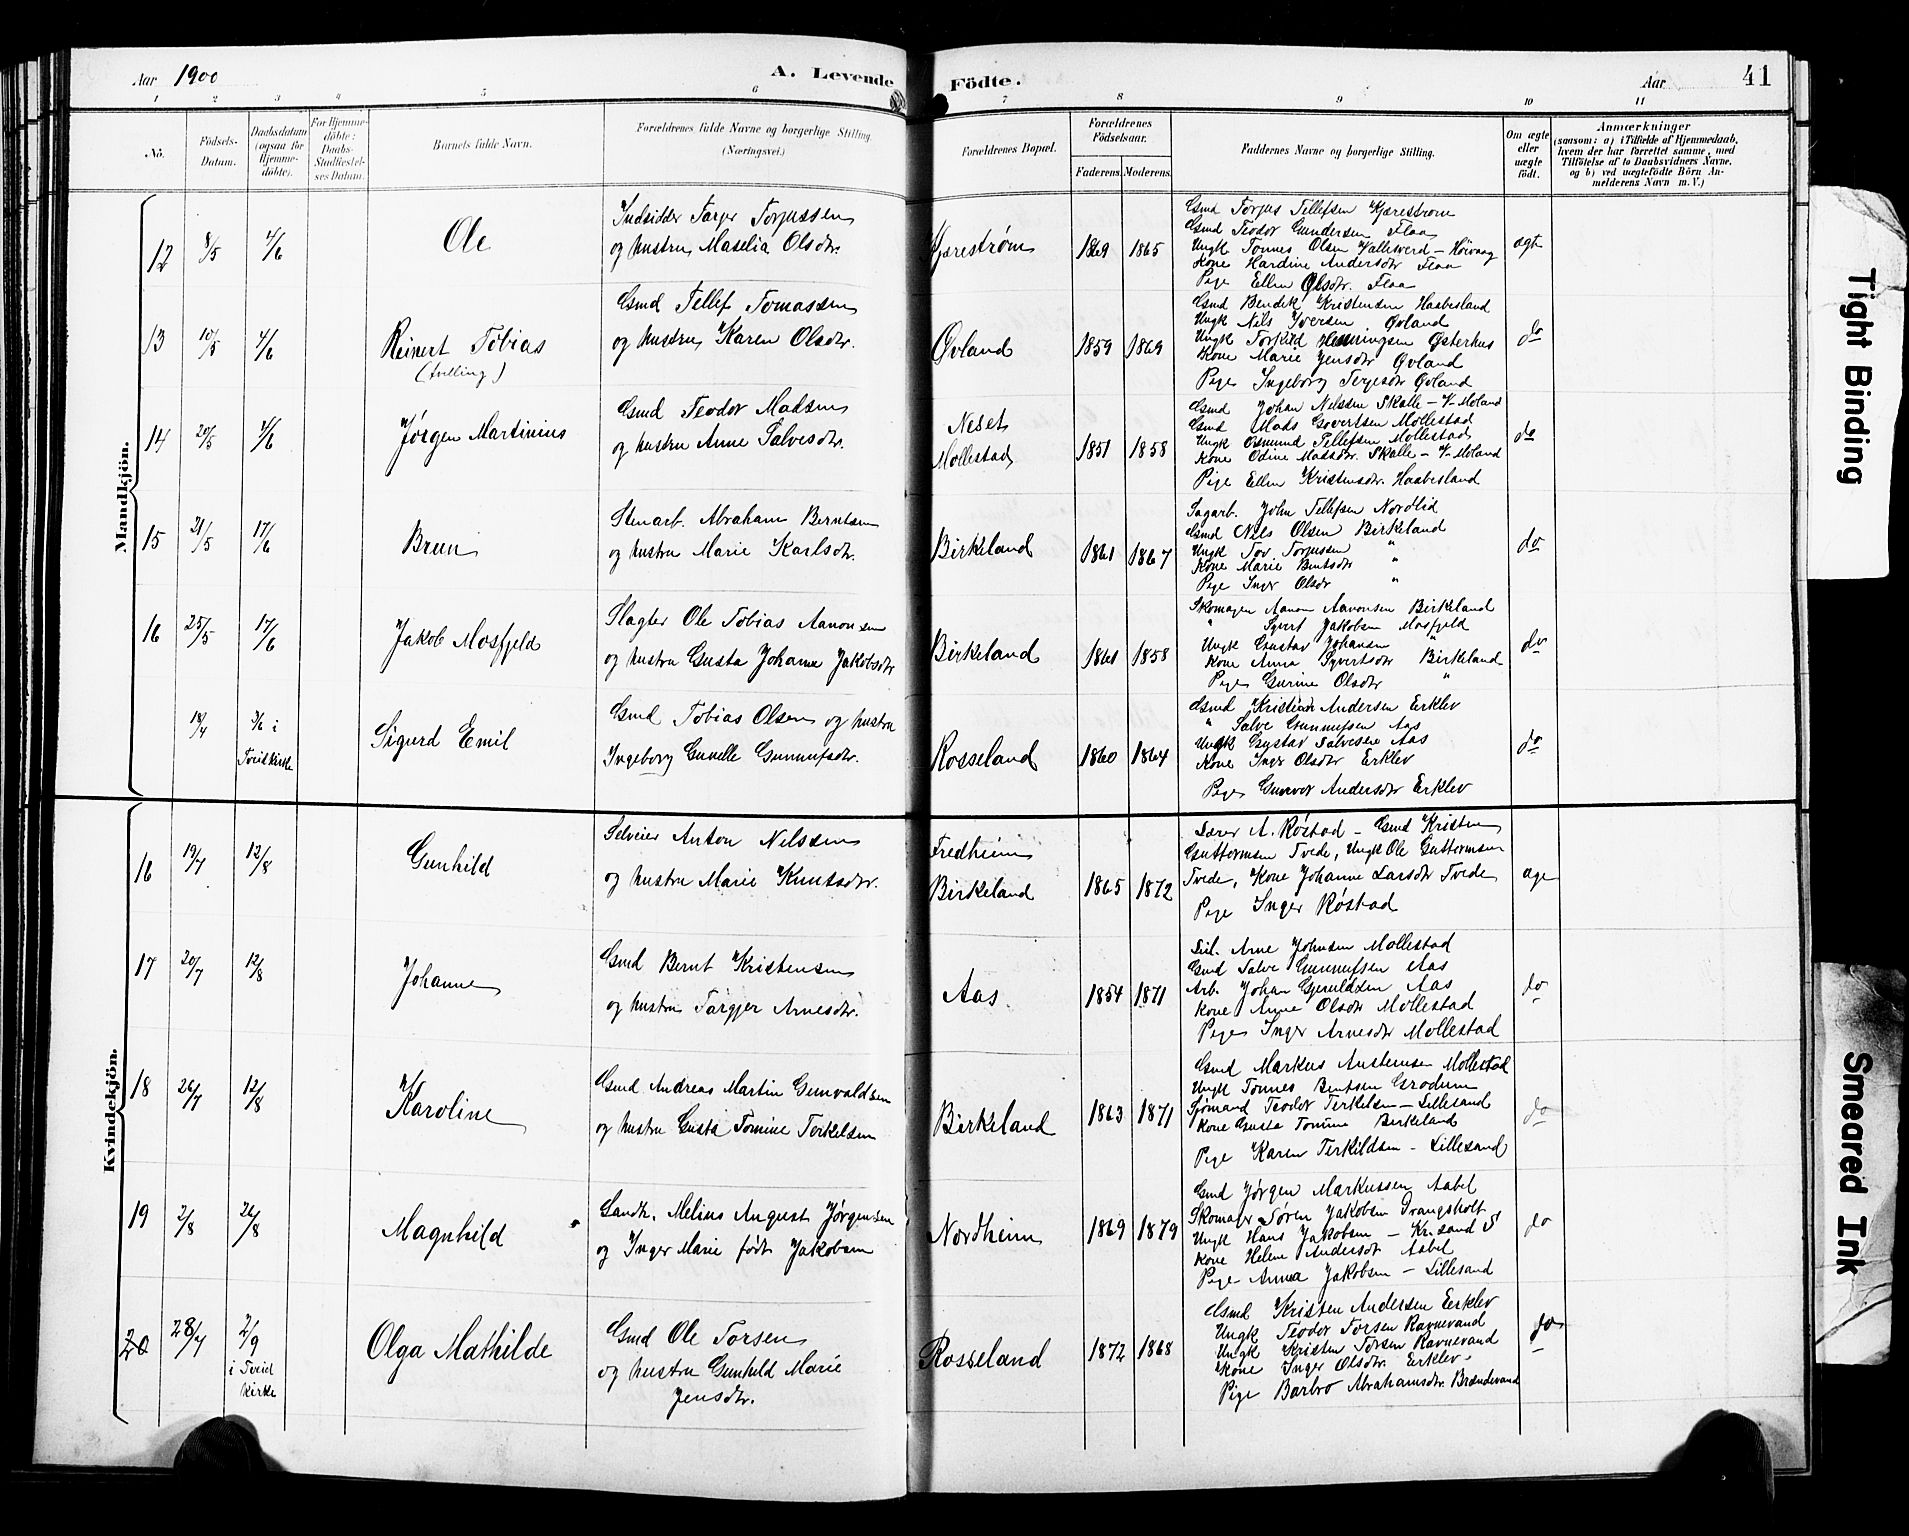 Aar 1900
A. Levende
Födte.
Aar
41
1 2 3 4 5 6 7 8 9 10 11
No.
Födsels-Datum.
Daabsdatum (ogsaa for Hjemme-döbte).
For Hjemme-döbte: Daabs-Stadfæstel-ses Datum.
Barnets fulde Navn.
Forældrenes fulde Navne og borgerlige Stilling. (Næringsvei.)
Forældrenes Bopæl.
Forældrenes Födselsaar.
Faderens. Moderens.
Faddernes Navne og borgerlige Stilling.
Om ægte eller uægte födt.
Anmærkninger
(saasom: a) i Tilfælde af Hjemmedaab, hvem der har forrettet samme, med Tilföielse af to Daabsvidners Navne, og b) ved uægtefödte Börn An-melderens Navn m. V.)
Mandkjön.
12 8/5 4/6 Ole
Indsidder Targer Torjussen
og hustru Maselia Olsdtr.
Kjærestrøm 1869 1865
Gmd Torjus Tellefsen Kjærestrøm
Gmd Teodor Gundersen Flaa
Ungk Tønnes Olsen Vallesverd - Høivaag
Kone Hardine Andersdtr Flaa
Pige Ellen Olsdtr. Flaa
ægt
13 10/5 4/6 Reinert Tobias
(tvilling)
Gmd Tellef Tomassen
og hustru Karen Olsdtr.
Øvland 1859 1869
Gmd Bendik Kristensen Haabesland
Ungk Nils Iversen Øvland
Ungk Torkild Henningsen Østerhus
Kone Marie Jensdtr Øvland
Pige Ingeborg Terjesdtr Øvland
do
14 20/5 4/6 Jørgen Martinius
Gmd Teodor Madsen
og hustru Anne Salvesdtr.
Neset
Mollestad 1851 1858
Gmd Johan Nilssen Skalle - V-Moland
Gmd Mads Govertsen Mollestad
Ungk Osmund Tellefsen Mollestad
Kone Odine Madsdtr. Skalle - V-Moland
Pige Ellen Kristensdtr. Haabesland
do
15 21/5 17/6 Brun
Stenarb. Abraham Berntsen
og hustru Marie Karlsdtr.
Birkeland 1861 1867
Sagarb. John Tellefsen Nordlid
Gmd Nils Olsen Birkeland
Ungk Tov Torjussen "
Kone Marie Bentsdtr "
Pige Inger Olsdtr "
do
16 25/5 17/6 Jakob Mosfjeld
Slagter Ole Tobias Aanonsen
og hustru Gusta Johanne Jakobsdtr
Birkeland 1861 1858
Skomager Aanon Aanonsen Birkeland
" Syvert Jakobsen Mosfjeld
Ungk Gustav Johansen "
Kone Anna Syvertsdtr Birkeland
Pige Gurine Olsdtr "
do
18/4 3/6 i
Tveidkirke
Sigurd Emil
Gmd Tobias Olsen og hustru
Ingeborg Gunelle Gunnufsdtr.
Rosseland 1860 1864
Gmd Kristian Andersen Erklev
" Salve Gunnufsen Aas
Ungk Gustav Salvesen Aas
Kone Inger Olsdtr Erklev
Pige Gunvor Andersdtr Erklev
do
Kvindekjön.
16 19/7 12/8 Gunhild
Selveier Anton Nilssen
og hustru Marie Knutsdtr.
Fredheim
Birkeland 1865 1872
Lærer A. Røstad - Gmd Kristen
Guttormsen Tvede, Ungk Ole Guttormsen
Tvede, Kone Johanne Larsdtr Tvede
Pige Inger Røstad
æge
17 20/7 12/8 Johanne
Gmd Bernt Kristensen
og hustru Targjer Arnesdtr.
Aas. 1854 1871
Arne Johnsen Mollestad
Gmd Salve Gunnufsen Aas
Arb. Johan Gjeruldsen Aas
Kone Anne Olsdtr Mollestad
Pige Inger Arnesdtr Mollestad
do
18 26/7 12/8 Karoline
Gmd Andreas Martin Gunvaldsen
og hustru Gusta Tomine Terkelsen
Birkeland 1863 1871
Gmd Markus Austensen Mollestad
Ungk Tønnes Bentsen Grødum
Sjømand Teodor Terkelsen - Lillesand
Kone Gusta Tomine Birkeland
Pige Karen Terkildsen - Lillesand
do
19 2/8 26/8 Magnhild
Landh. Melius August Jørgensen
og Inger Marie født Jakobsen
Nordheim 1869 1879
Gmd Jørgen Markussen Aabel
Skomager Søren Jakobsen Drangsholt
Ungk Hans Jakobsen - Kr.sand S
Kone Helene Andersdt Aabel
Pige Anna Jakobsen - Lillesand
do
20 28/7 2/9
i Tveid
kirke
Olga Mathilde
Gmd Ole Torsen
og hustru Gunhild Marie
Jensdtr.
Rosseland 1872 1868
Gmd Kristen Andersen Erklev
Ungk Teodor Torsen Ravnevand
Ungk Kristen Torsen Ravnevand
Kone Inger Olsdtr. Erklev
Pige Barbro Abrahamsdtr. Brændevand
do
Tight Binding
Smeared Ink